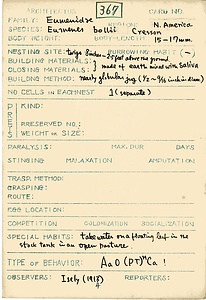 ARCHITECTS 367 CARD NO.
FAMILY: Eumenidae REGION: N. America
SPECIES: Eumenes bollii Cresson
BODY WEIGHT: BODY LENGTH: 15-17mm.
NESTING SITE: twigs 20 feet above the ground BURROWING HABIT (-)
BUILDING MATERIALS: } made of earth mixed with saliva
CLOSING MATERIALS:
BUILDING METHOD: nearly globular jug
NO. CELLS IN EACH NEST 1 (separate)
KIND:
PRESERVED NO.:
WEIGHT OR SIZE:
PARALYSIS: MAX. DUR. DAYS
STINGING MALAXATION AMPUTATION
TRASP. METHOD:
GRASPING:
ROUTE:
EGG LOCATION:
COMPETITION COLONIZATION SOCIALIZATION
SPECIAL HABITS: take water on a floating leaf in the
stock tank in an open pasture.
TYPE OF BEHAVIOR:
OBSERVERS: Isely (1917) REPORTERS: